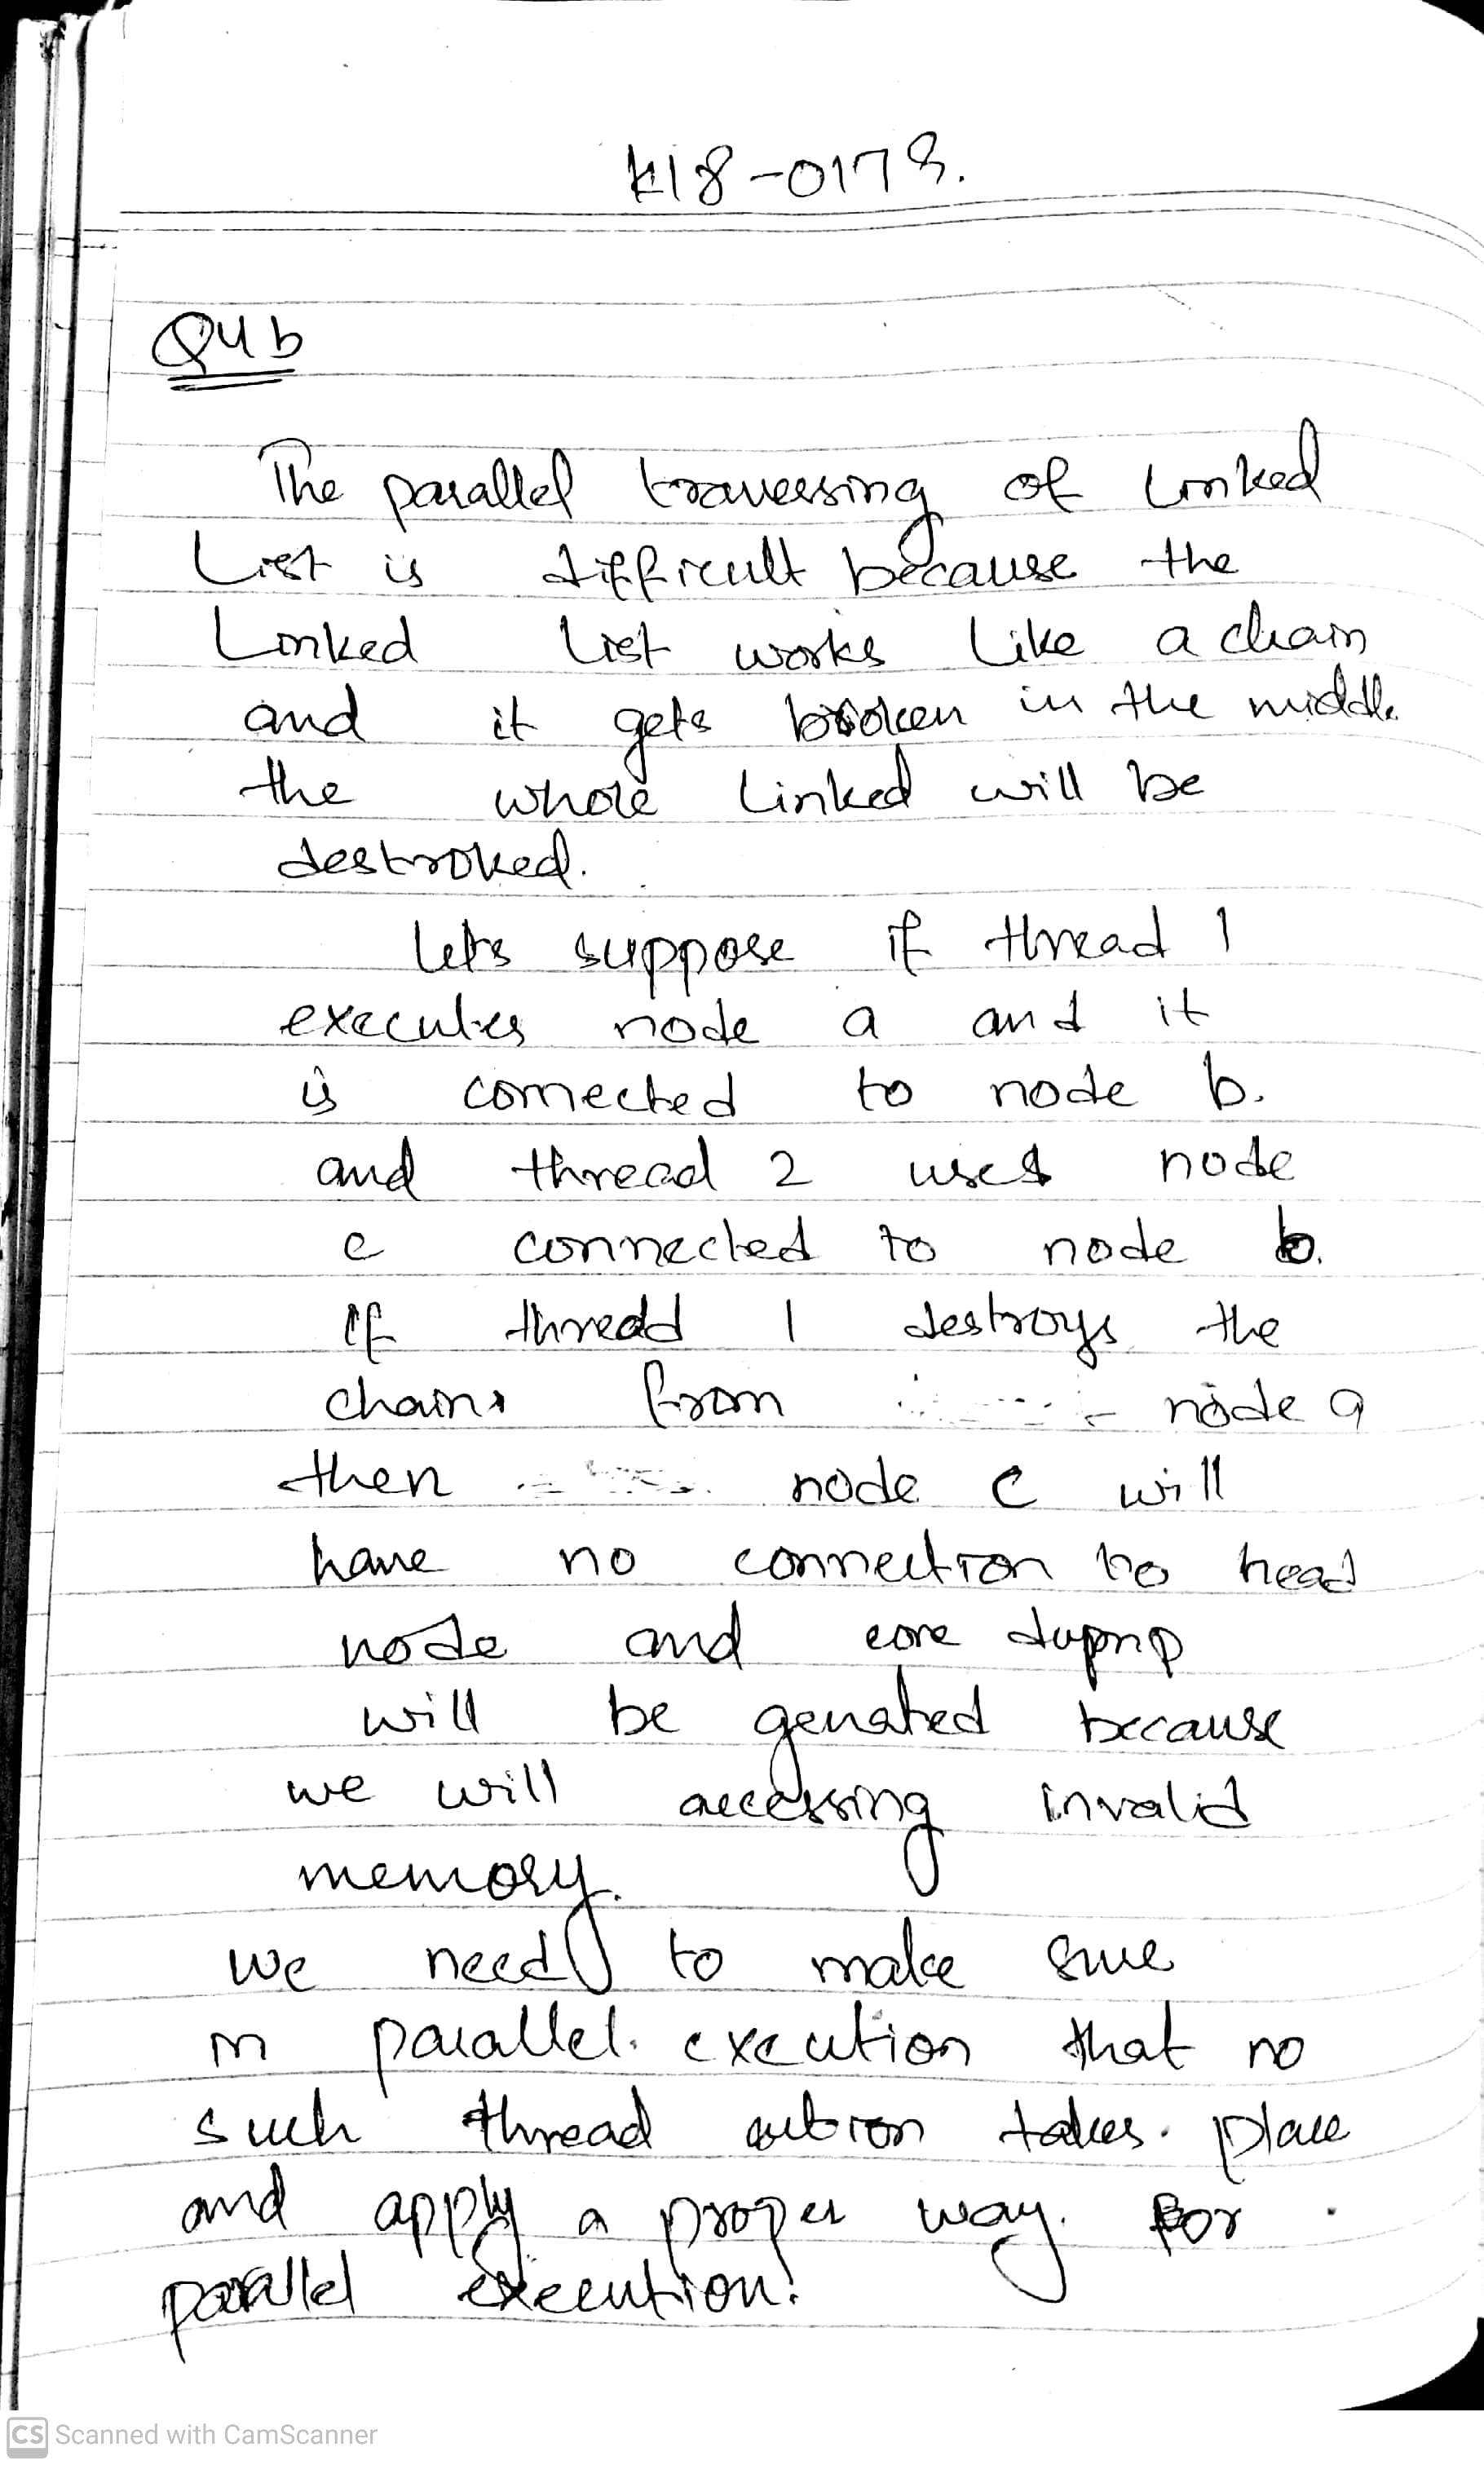 K18-0173.
Q4b
The parallel traversing of Linked
List is difficult because the
Linked List works like a chain
and it gets broken in the middle
the whole Linked will be
destroked.
lets suppose if thread 1
executes node a and it
is connected to node b.
and thread 2 uses node
c connected to node b.
If thread 1 destroys the
chain from node a
then node c will
have no connection to head
node and core
will be genated because
we will accessing invalid
memory.
we need to make sure
in parallel execution that no
such thread action takes place
and apply a proper way for
parallel execution.
CS Scanned with CamScanner